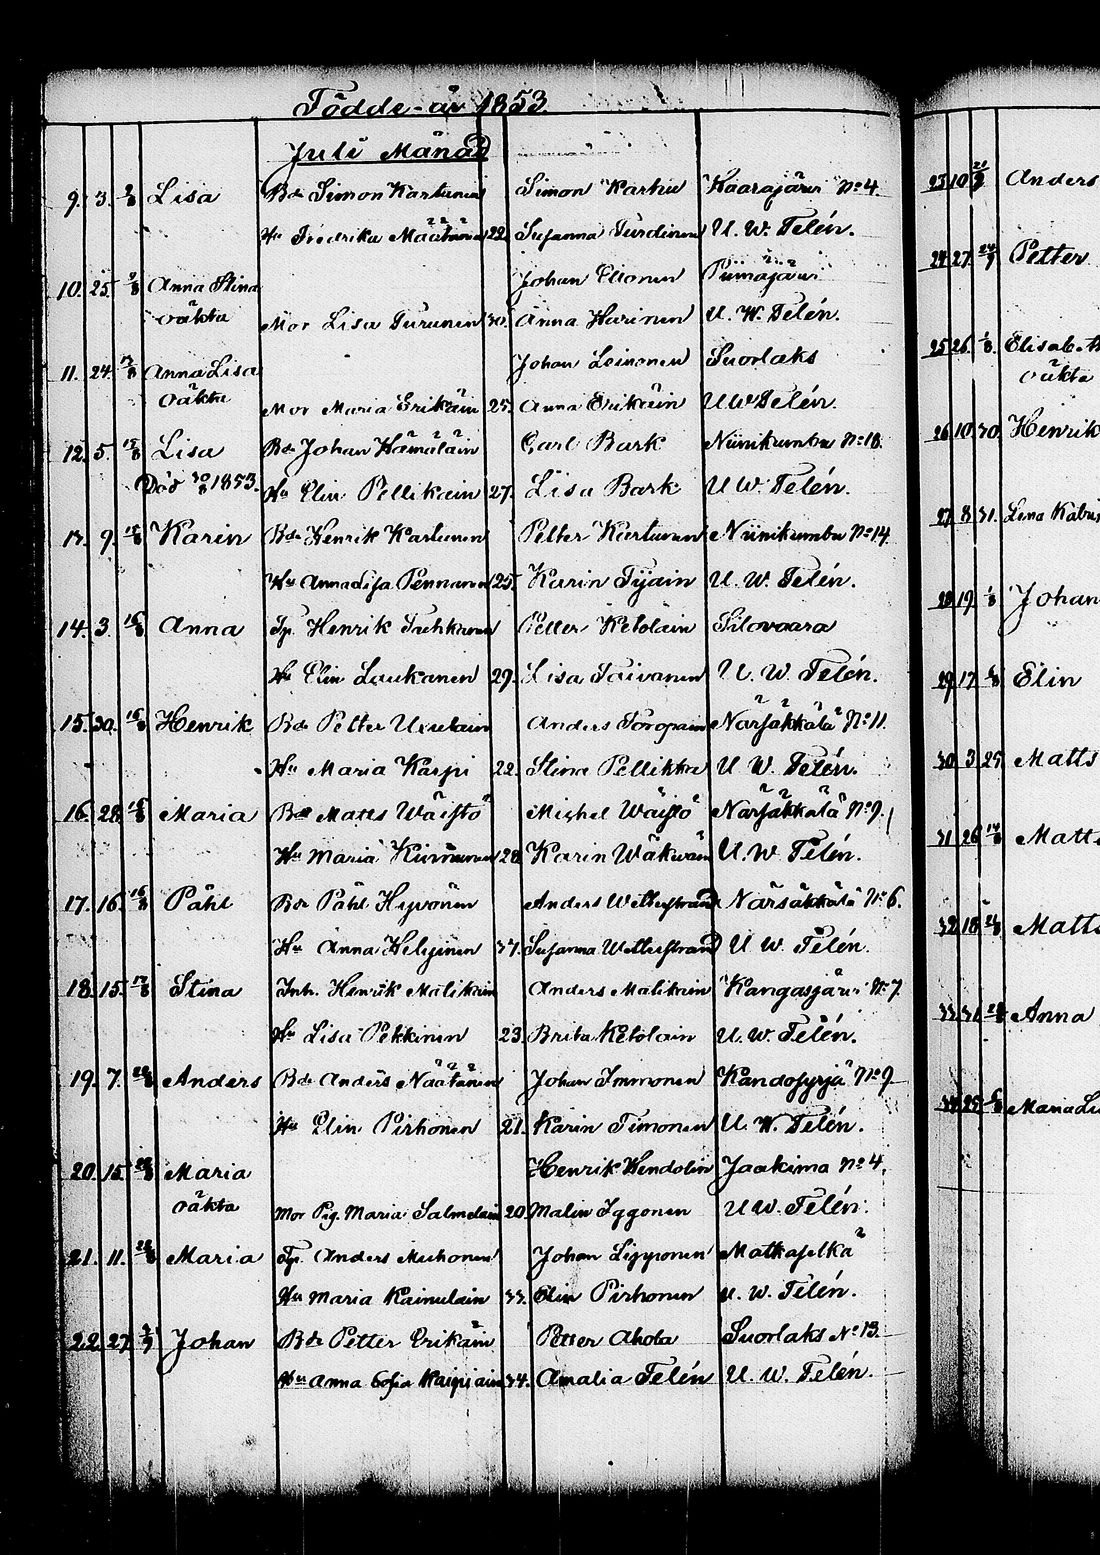 Födde - år 1853
Juli Månad
9. 3. 2/8 Lisa Bde Simon Kartunen Simon Karhu Kaarajärvi No 4.
Hu Fredrika Määtänen 22. Susanna Turdinen U. W. Telén.
10. 25. 2/8 Anna Stina Johan Elionen Piimäjärvi
oäkta Mor Lisa Turunen 30. Anna Harinen U. W. Telén.
11. 24. Anna Lisa Johan Leinonen Suorlaks
oäkta Mor Maria Erikäin 25. Anna Erikäin U W Telén.
12. 5. 15/8 Lisa Bde Johan Hämäläin Carl Bark Niinikumbu No 18.
Död 30/8 1853. Hu Elin Pellikain 27. Lisa Bark U W. Telén.
13. 9. 15/8 Karin Bde Henrik Kartunen Petter Kartunen Niinikumbu No 14.
Hu Anna Lisa Pennanen 25. Karin Tijain U. W. Telén.
14. 3. 16/8 Anna Tp. Henrik Tuhkunen Petter Ketolain Silovaara
Hu Elin Laukanen 29. Lisa Taivanen U. W. Telén.
15. 30. 16/8 Henrik Bde Petter Anders Toropain Närsäkkälä No 11.
Hu Maria Karpi 22. Stina Pellikka U W. Telén.
16. 28. 16/8 Maria Bde Matts Wäistö Michel Wäistö Närsäkkälä No 9.
Hu Maria Kinnunen 28. Karin Wäkiväin U. W Telén.
17. 16. 16/8 Påhl Bde Påhl Hyvönen Anders Wetterstrand Närsäkkälä No 6.
Hu Anna Heljinen 37. Susanna Wetterstrand U W. Telén.
18. 15. 17/8 Stina Inh. Henrik Malikain Anders Malikain Kangasjärvi No 7.
Hu Lisa Pekkinen 23. Brita Ketolain U. W. Telén.
19. 7. 20/8 Anders Bde Anders Näätänen Johan Immonen Kandosyrjä No 9
Hu Elin Pirhonen 21. Karin Timonen U. W. Telén.
20. 15. 28/8 Maria Henrik Wendolin Jaakima No 4.
oäkta Mor Pig. Maria Salmelain 20. Malin Iggonen U W. Telén.
21. 11. 28/8 Maria Tp. Anders Muhonen Johan Lipponen Matkaselkä
Hu Maria Kainulain 33. Elin Pirhonen U. W. Telén.
22. 27. Johan Bde Petter Erikäin Petter Ahola Suorlaks No 13.
Hu Anna Sofia Kaipiain 34. Amalia Telén U. W. Telén.
23 10 Anders
24 27. Petter
25 26. 1/8 Elisabeth
oäkta
26 10 30. Henrik
27 8 31. Lena
28 19. 1/8 Johan
29 17 Elin
30 3 25 Matts
31 26 14/8 Matts
32 18 Matts
33 31 Anna
34 25 Maria